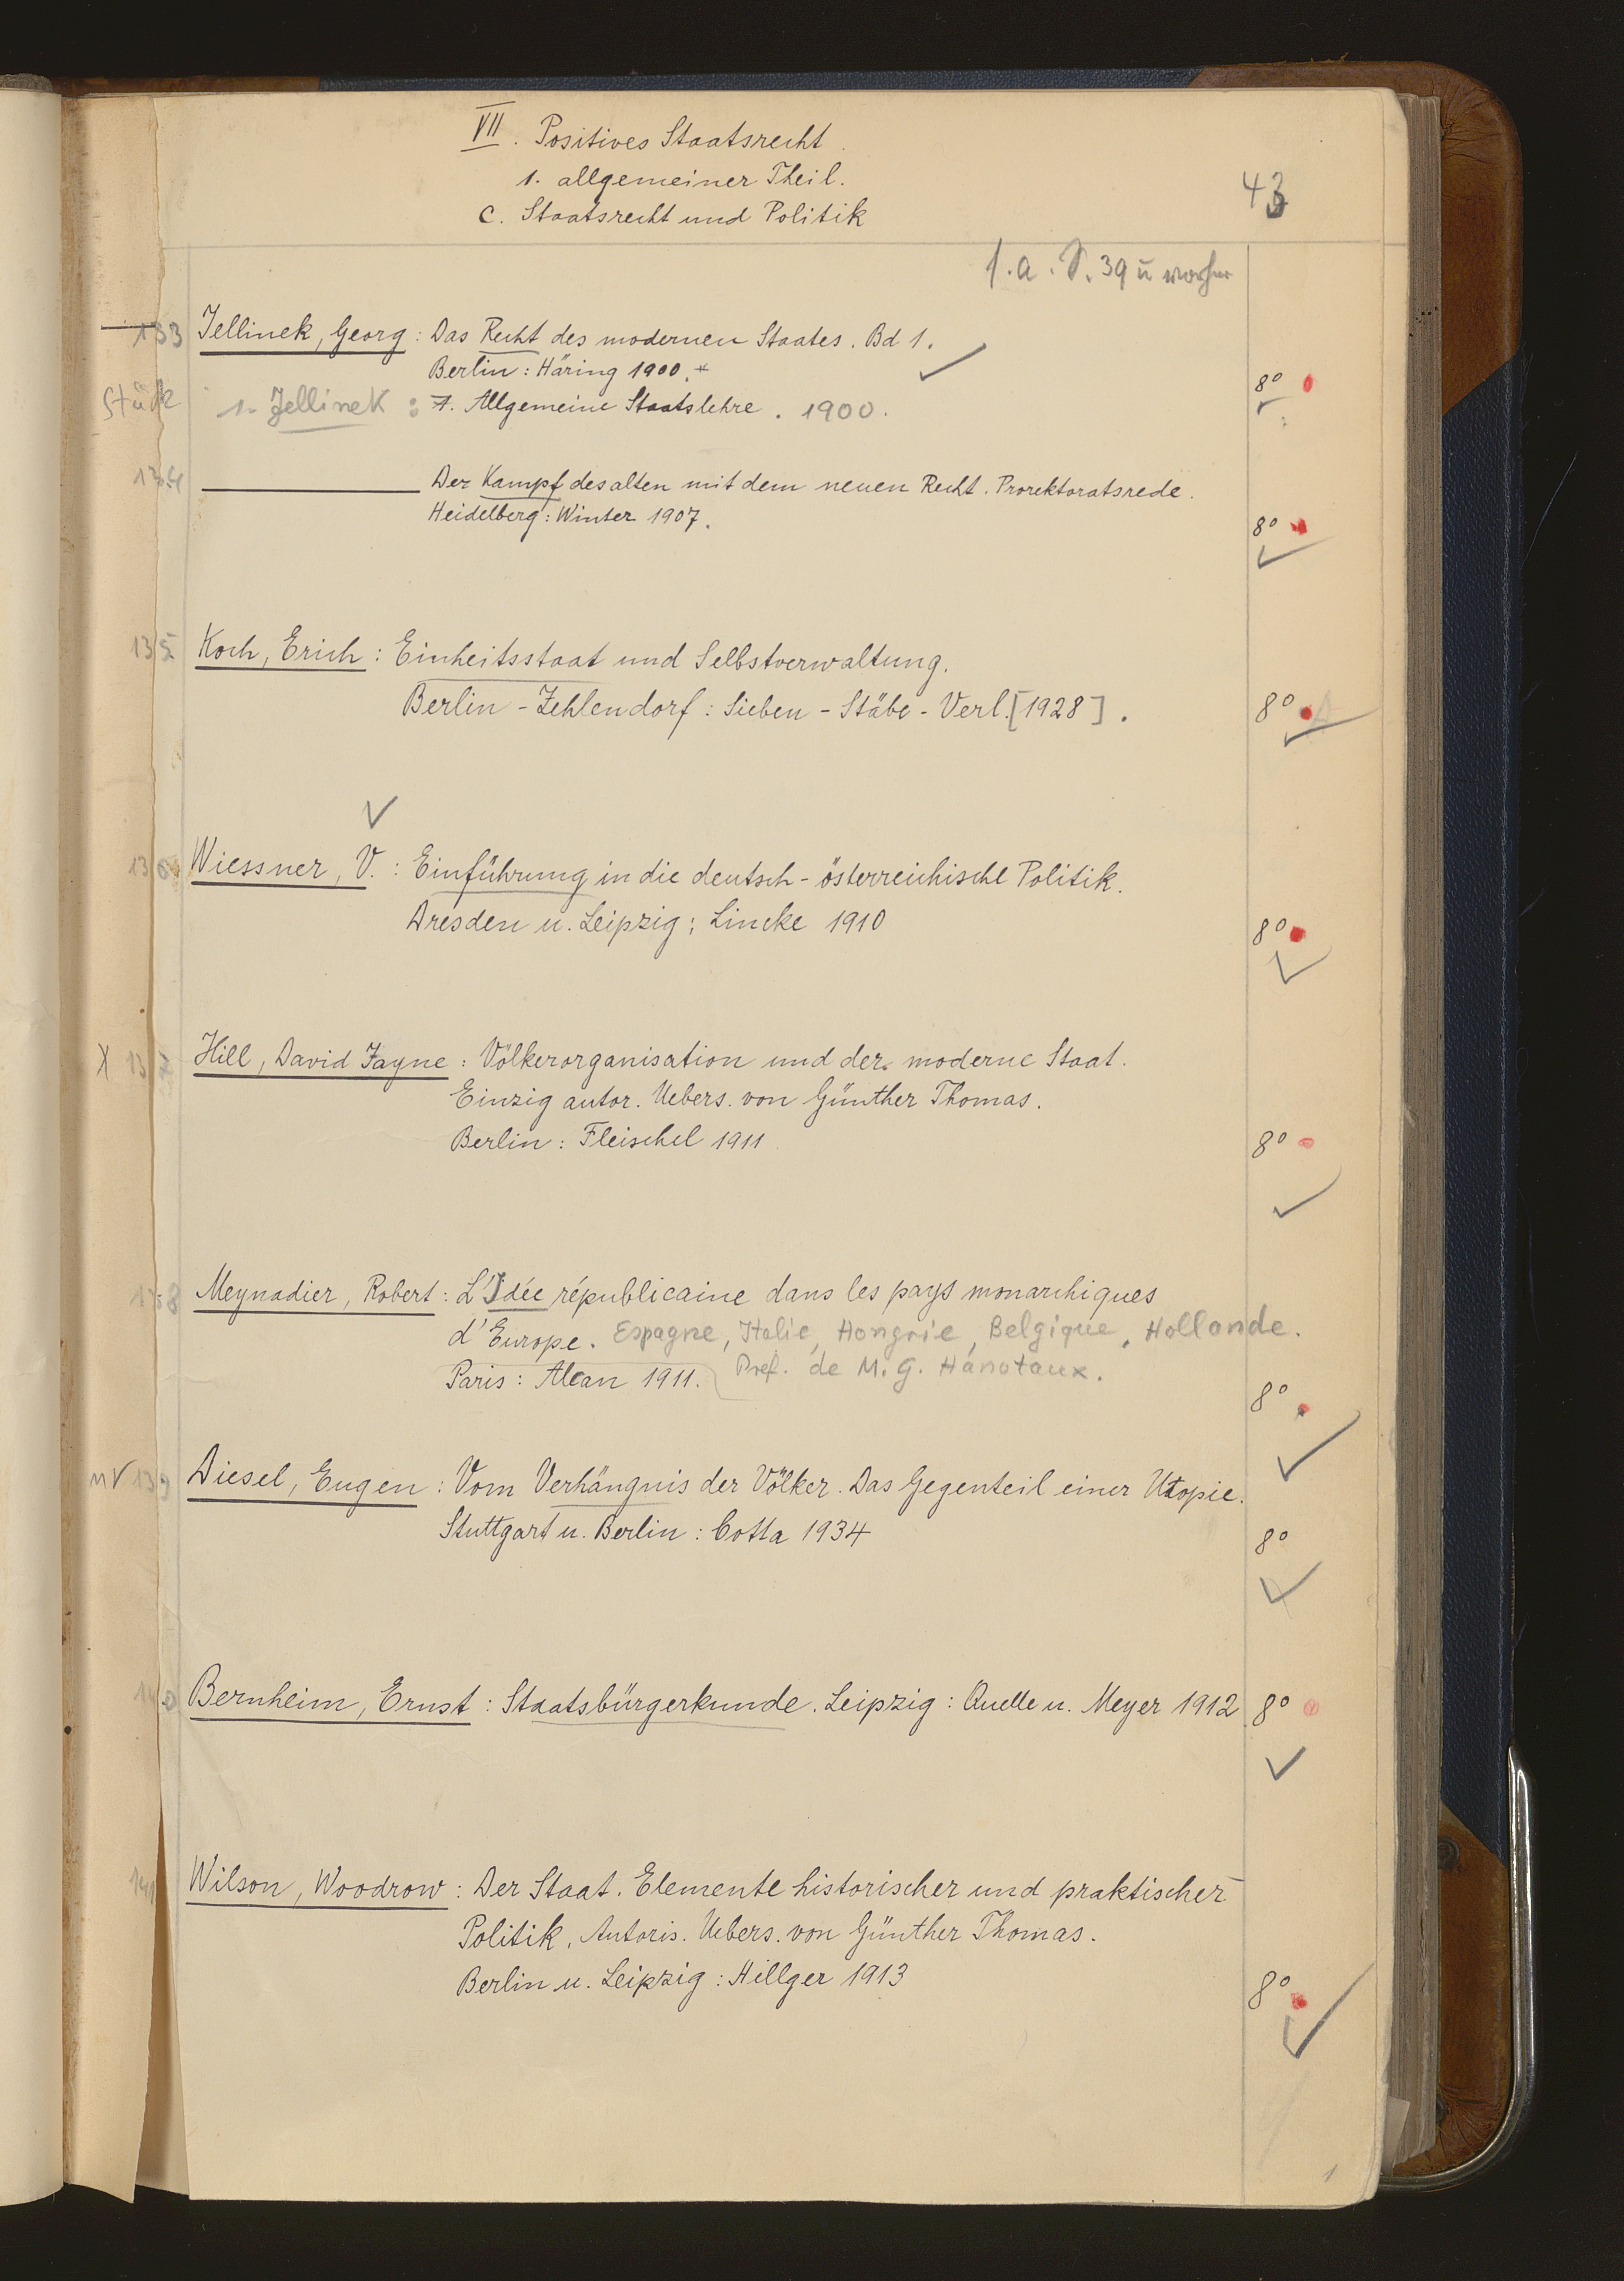 VII. Positives Staatsrecht.
1. allgemeiner Theil.
43
c. Staatsrecht und Politik
s. a. S. 39 u vorher
133 Jellinek, Georg : Das Recht des modernen Staates. Bd 1.
Berlin : Häring 1900. +
8°
Stück 1. Jellinek : 1. Allgemeine Staatslehre . 1900.
134 ——— Der Kampf des alten mit dem neuen Recht. Prorektoratsrede.
Heidelberg : Winter 1907.
8°
135 Koch, Erich : Einheitsstaat und Selbstverwaltung.
Berlin - Zehlendorf : Sieben - Stäbe - Verl. [1928] .
8°
136 Wiessner, V. : Einführung in die deutsch - österreichische Politik.
Dresden u. Leipzig : Lincke 1910
8°
X 137 Hill, David Jayne : Völkerorganisation und der moderne Staat.
Einzig autor. Uebers. von Günther Thomas.
Berlin : Fleischel 1911
8°
138 Meynadier, Robert : L'Idée républicaine dans les pays monarchiques
d'Europe. Espagne, Italie, Hongrie, Belgique, Hollande.
Paris : Alcan 1911. Préf. de M. G. Hanotaux.
8°
139 Diesel, Eugen : Vom Verhängnis der Völker. Das Gegenteil einer Utopie.
Stuttgart u. Berlin : Cotta 1934
8°
140 Bernheim, Ernst : Staatsbürgerkunde. Leipzig : Quelle u. Meyer 1912 8°
141 Wilson, Woodrow : Der Staat. Elemente historischer und praktischer
Politik. Autoris. Uebers. von Günther Thomas.
Berlin u. Leipzig : Hillger 1913
8°
1